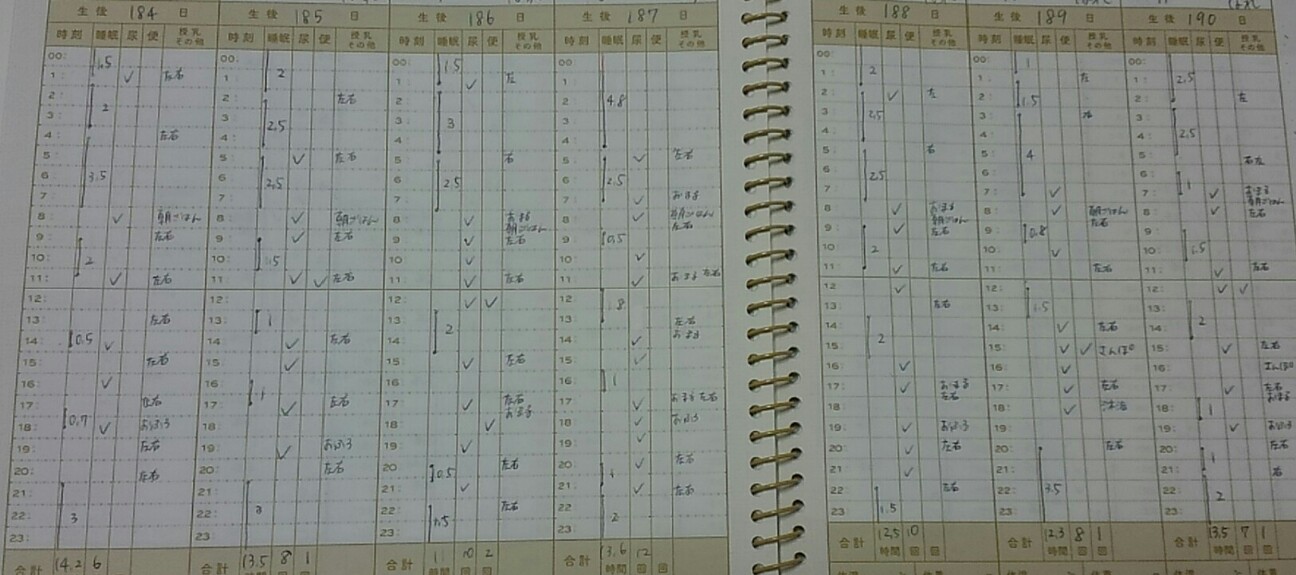 生後 184 日
時刻 睡眠 尿 便 授乳 その他
00: 1.5
1: ✓ 左右
2: 2
3:
4: 左右
5:
6: 3.5
7:
8: ✓ 朝ごはん
9: 左右
10: 2
11: ✓ 左右
12:
13: 左右
14: 0.5 ✓
15: 左右
16: ✓
17: 0.7 左右
18: ✓ おふろ
19: 左右
20: 左右
21:
22: 3
23:
合計 14.2 6
生後 185 日
時刻 睡眠 尿 便 授乳 その他
00:
1: 2
2: 左右
3: 2.5
4:
5: ✓ 左右
6: 2.5
7:
8: ✓ 朝ごはん
9: ✓ 左右
10: 1.5
11: ✓ ✓ 左右
12:
13: 1
14: ✓ 左右
15: ✓
16: 1
17: ✓ 左右
18:
19: ✓ おふろ
20: 左右
21:
22: 3
23:
合計 13.5 時間 8 回 1 回
生後 186 日
時刻 睡眠 尿 便 授乳 その他
00: 1.5
1: ✓ 左
2:
3: 3
4:
5: 右
6: 2.5
7:
8: ✓ おまる 朝ごはん
9: ✓ 左右
10: ✓
11: ✓ 左右
12: ✓ ✓
13: 2
14:
15: ✓ 左右
16:
17: ✓ 左右 おまる
18: ✓
19: ✓
20: 0.5 左右
21: ✓
22: 1.5 左右
23:
合計 時間 10 回 2 回
生後 187 日
時刻 睡眠 尿 便 授乳 その他
00:
1:
2: 4.8
3:
4:
5: ✓ 左右
6: 2.5
7: ✓ おまる
8: ✓ 朝ごはん 左右
9: 0.5
10: ✓
11: ✓ おまる 左右
12: 1.8
13: 左右
14: ✓ おまる
15: ✓
16: 1
17: ✓ おまる 左右
18: ✓ おふろ
19: ✓
20: 1 ✓ 左右
21: ✓ 左右
22: 2
23:
合計 13.6 時間 12 回 回
生後 188 日
時刻 睡眠 尿 便 授乳 その他
00:
1: 2
2: ✓ 左
3: 2.5
4:
5: 右
6: 2.5
7:
8: ✓ おまる 朝ごはん
9: 2 ✓ 左右
10:
11: ✓ 左右
12: ✓
13: 左右
14:
15: 2
16: ✓
17: ✓ おまる 左右
18:
19: ✓ おふろ
20: ✓
21: ✓
22: 左右
23: 1.5
合計 12.5 時間 10 回 回
生後 189 日
時刻 睡眠 尿 便 授乳 その他
00: 1
1: 左
2: 1.5
3: 右
4:
5: 4
6:
7: ✓
8: ✓ 朝ごはん 左右
9: 0.8
10: ✓
11: 左右
12:
13: 1.5
14: ✓ 左右
15: ✓ ✓ さんぽ
16: ✓
17: ✓ 左右
18: ✓
19:
20: 左右
21:
22: 3.5
23:
合計 12.3 時間 8 回 1 回
生後 190 日
時刻 睡眠 尿 便 授乳 その他
00:
1: 2.5
2: 左
3:
4: 2.5
5: 右左
6: 1
7: ✓ おまる 朝ごはん
8: ✓ 左右
9:
10: 1.5
11: ✓ 左右
12: ✓ ✓
13:
14: 2
15: ✓ 左右
16: さんぽ
17: ✓ 左右 おまる
18: 1
19: ✓ おふろ
20: 1 左右
21: 右
22: 2
23:
合計 13.5 時間 7 回 1 回